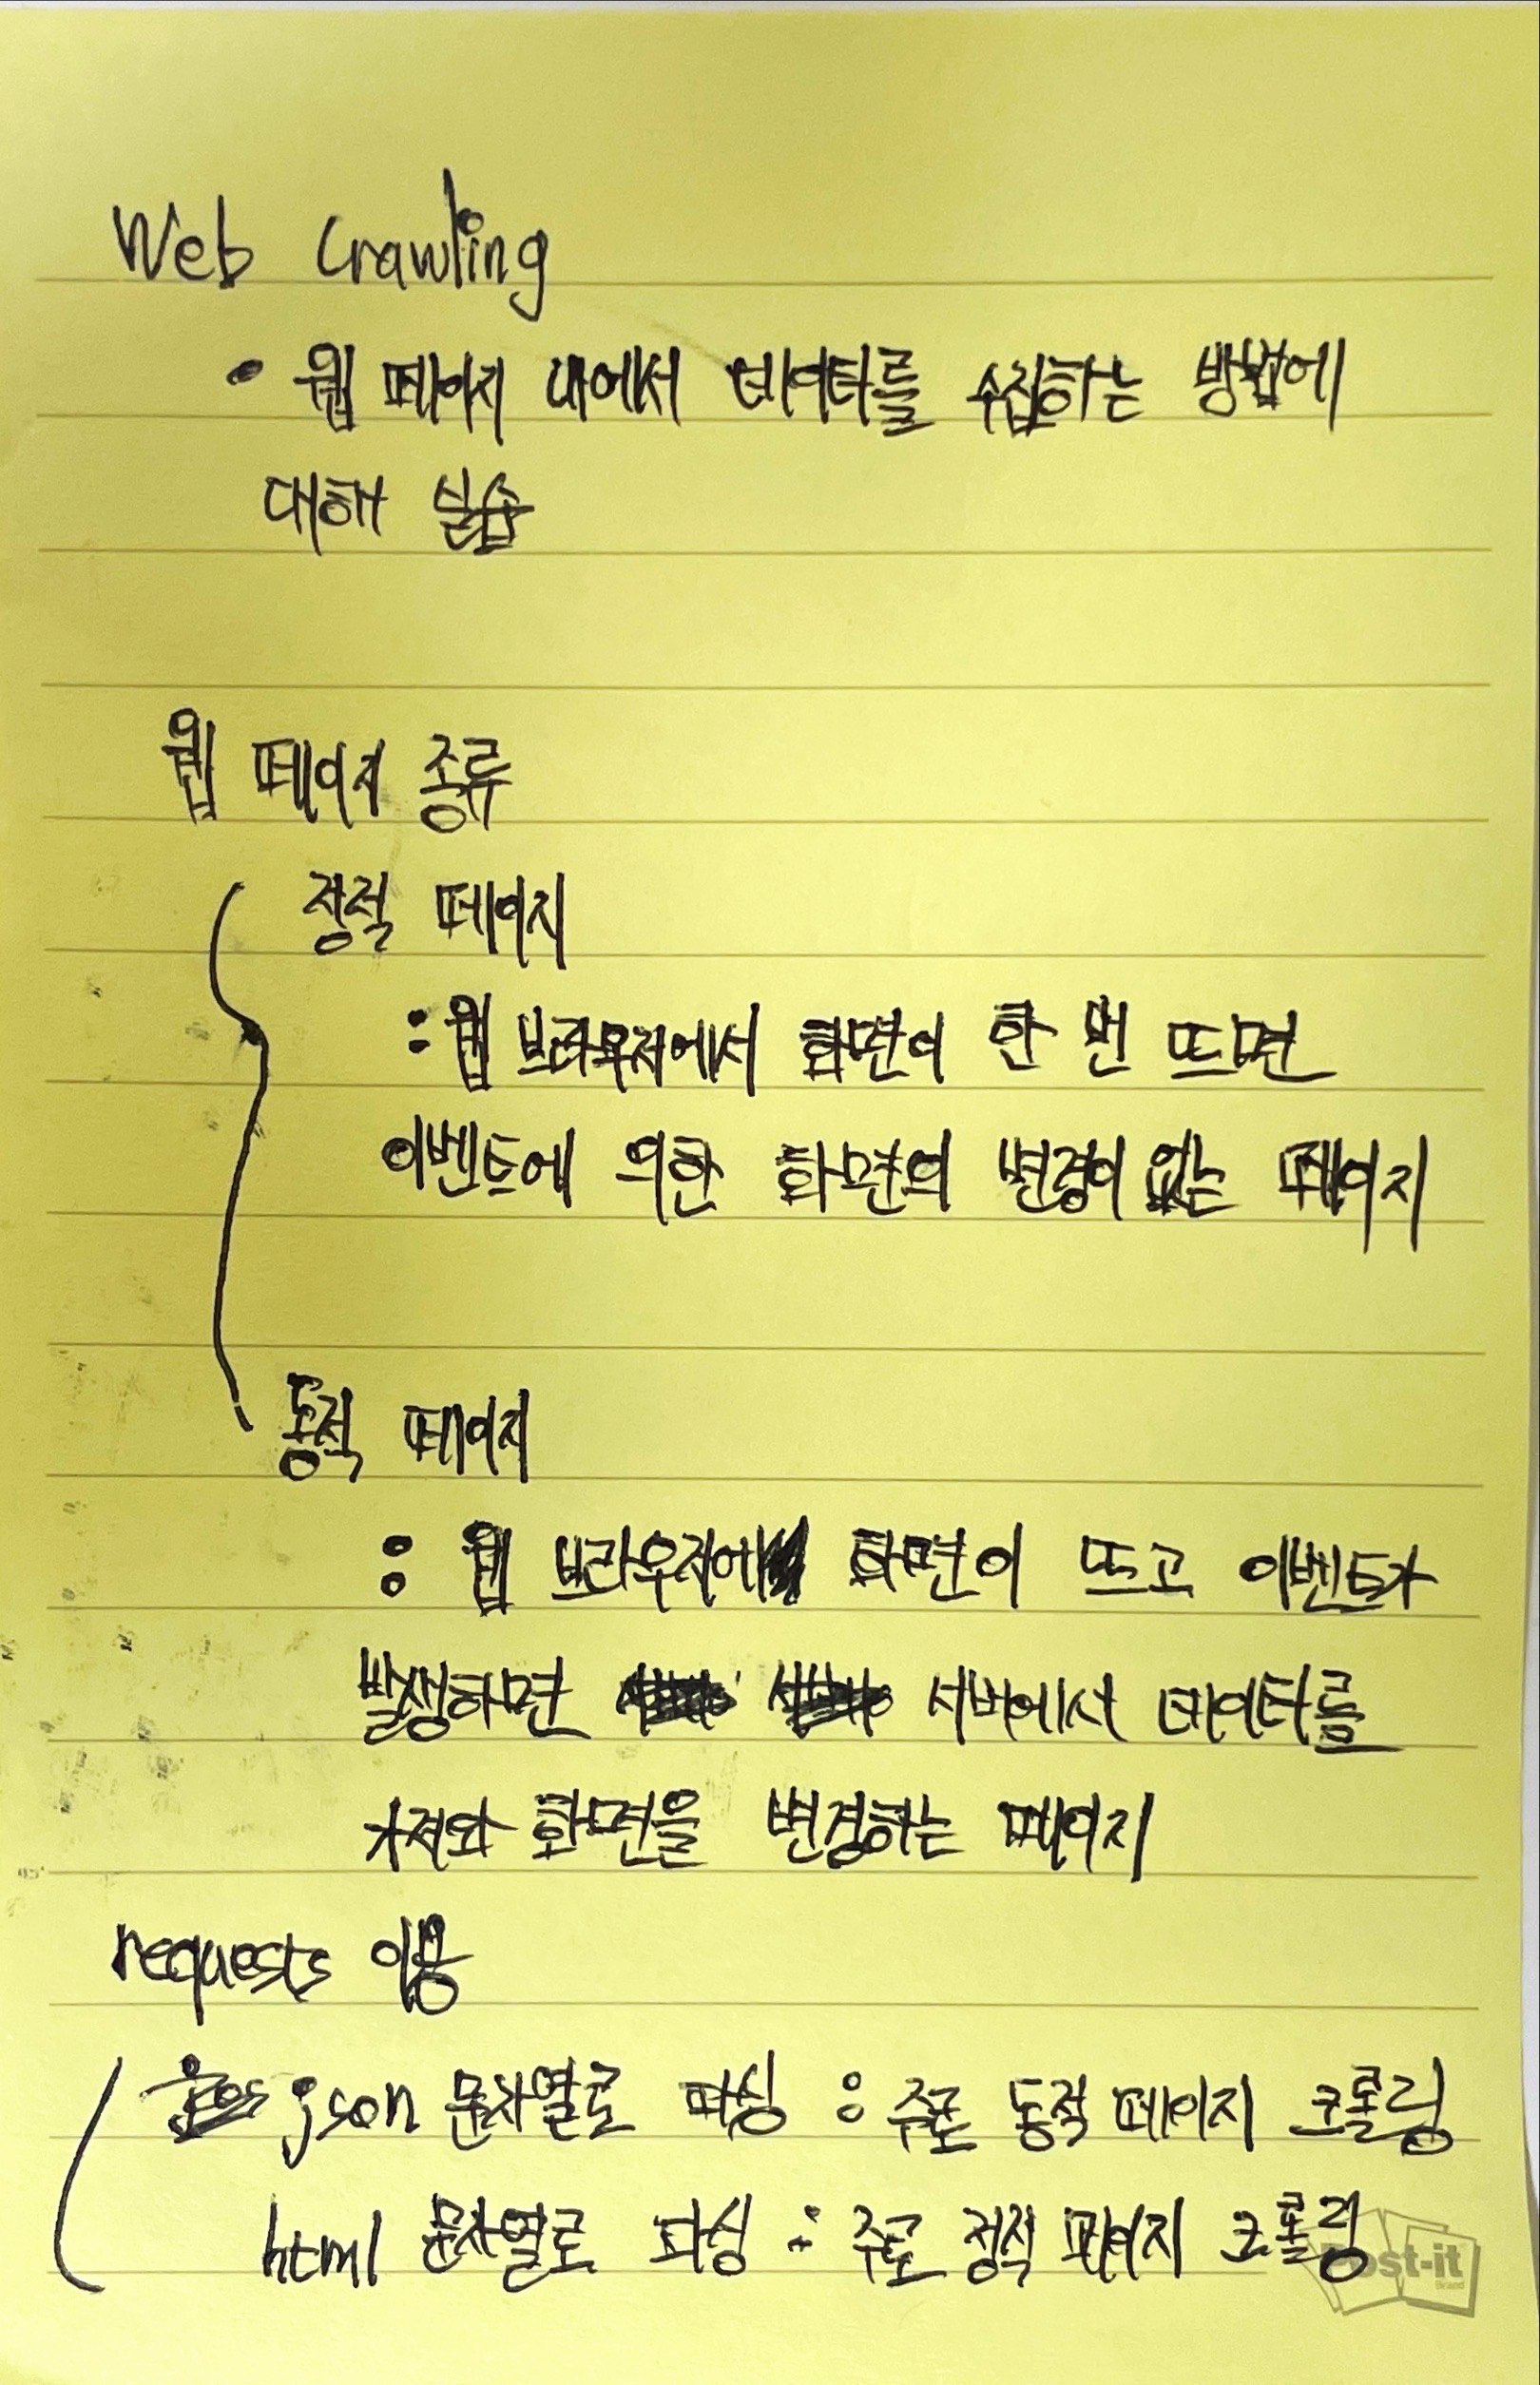 Web Crawling
• 웹 페이지 내에서 데이터를 수집하는 방법에
대해 실습
웹 페이지 종류
정적 페이지
: 웹 브라우저에서 화면이 한 번 뜨면
이벤트에 의한 화면의 변경이 없는 페이지
동적 페이지
: 웹 브라우저에 화면이 뜨고 이벤트가
발생하면 서버에서 데이터를
가져와 화면을 변경하는 페이지
requests 이용
json 문자열로 파싱 : 주로 동적 페이지 크롤링
html 문자열로 파싱 : 주로 정적 페이지 크롤링
Post-it
Brand